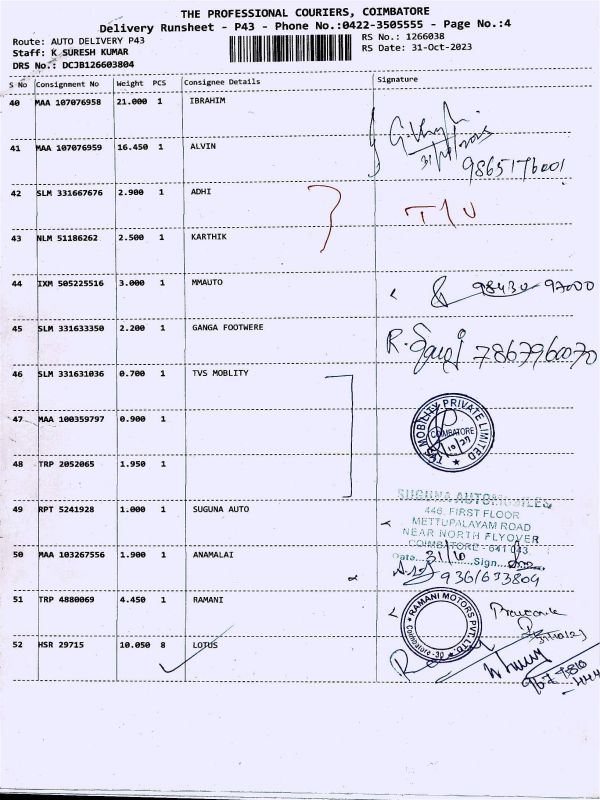 THE PROFESSIONAL COURIERS, COIMBATORE
Delivery Runsheet - P43 - Phone No.:0422-3505555 - Page No.:4
Route: AUTO DELIVERY P43
RS No.: 1266038
Staff: K SURESH KUMAR
RS Date: 31-Oct-2023
DRS No.: DCJB126603804
S No Consignment No Weight PCS Consignee Details Signature
40 MAA 107076958 21.000 1 IBRAHIM
41 MAA 107076959 16.450 1 ALVIN
31/10/2023
9865176001
42 SLM 331667676 2.900 1 ADHI
43 NLM 51186262 2.500 1 KARTHIK
44 IXM 505225516 3.000 1 MMAUTO
98430 97000
45 SLM 331633350 2.200 1 GANGA FOOTWERE
7867960070
46 SLM 331631036 0.700 1 TVS MOBLITY
47 MAA 100359797 0.900 1
TVS MOBILITY PRIVATE LIMITED
COIMBATORE
48 TRP 2052065 1.950 1
49 RPT 5241928 1.000 1 SUGUNA AUTO
SUGUNA AUTOMOBILES
446, FIRST FLOOR
METTUPALAYAM ROAD
NEAR NORTH FLYOVER
COIMBATORE - 641 043
50 MAA 103267556 1.900 1 ANAMALAI
Date 31/10 Sign
9361633809
51 TRP 4880069 4.450 1 RAMANI
RAMANI MOTORS PVT LTD
Coimbatore-30
52 HSR 29715 10.050 8 LOTUS